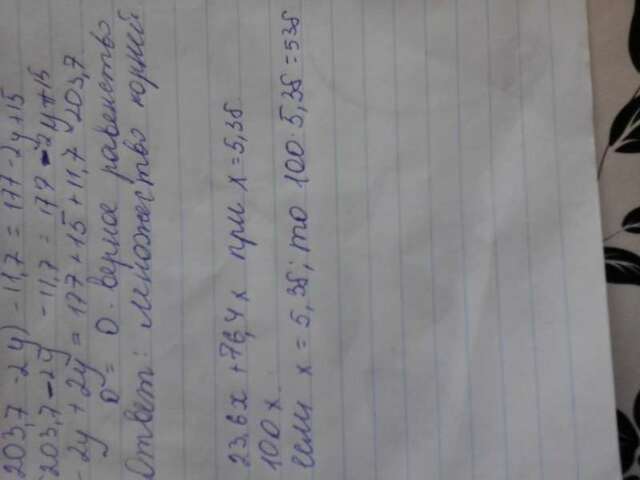 203,7 - 2y) - 11,7 = 177 - 2y + 15
203,7 - 2y - 11,7 = 177 - 2y + 15
- 2y + 2y = 177 + 15 + 11,7 - 203,7
0 = 0 - верное равенство
Ответ: множество корней
23,6x + 76,4x при x = 5,38
100x.
если x = 5,38; то 100 · 5,38 = 538